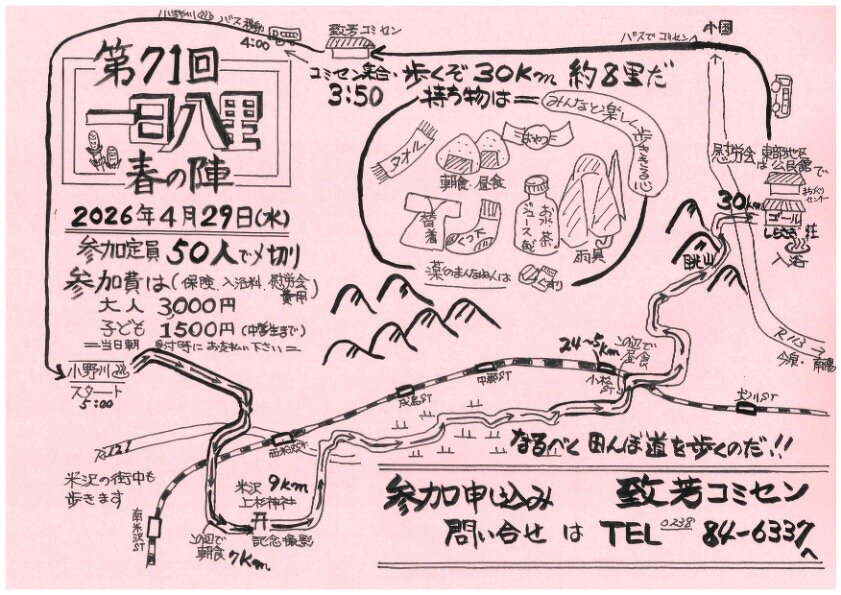 小野川 バス移動
4:00
致芳コミセン
バスでコミセンへ
小国
第71回
一日八里
春の陣
コミセン集合・歩くぞ30Km 約8里だ
3:50
持ち物は
みんなと楽しく歩ききる
タオル
朝食・昼食
おやつ
替着
くつ下
お水 茶 ジュース 等
雨具
薬のまんなねんは
くすり
2026年4月29日(水)
参加定員50人で〆切り
参加費は(保険、入浴料、慰労会費用)
大人 3000円
子ども 1500円(中学生まで)
=当日朝 受付時にお支払い下さい=
慰労会は東部地区公民館で
まちづくりセンター
30km
ゴール
しらさぎ荘
入浴
眺山
R113
今泉・南陽
小野川
スタート
5:00
24〜5km
この辺で昼食
小松ST
中郡ST
成島ST
西米沢ST
犬川ST
南米沢ST
R121
米沢の街中も
歩きます
米沢 9km
上杉神社
記念撮影
この辺で
朝食 7Km
なるべく田んぼ道を歩くのだ!!
参加申し込み 致芳コミセン
問い合せは TEL 0238 84-6337へ